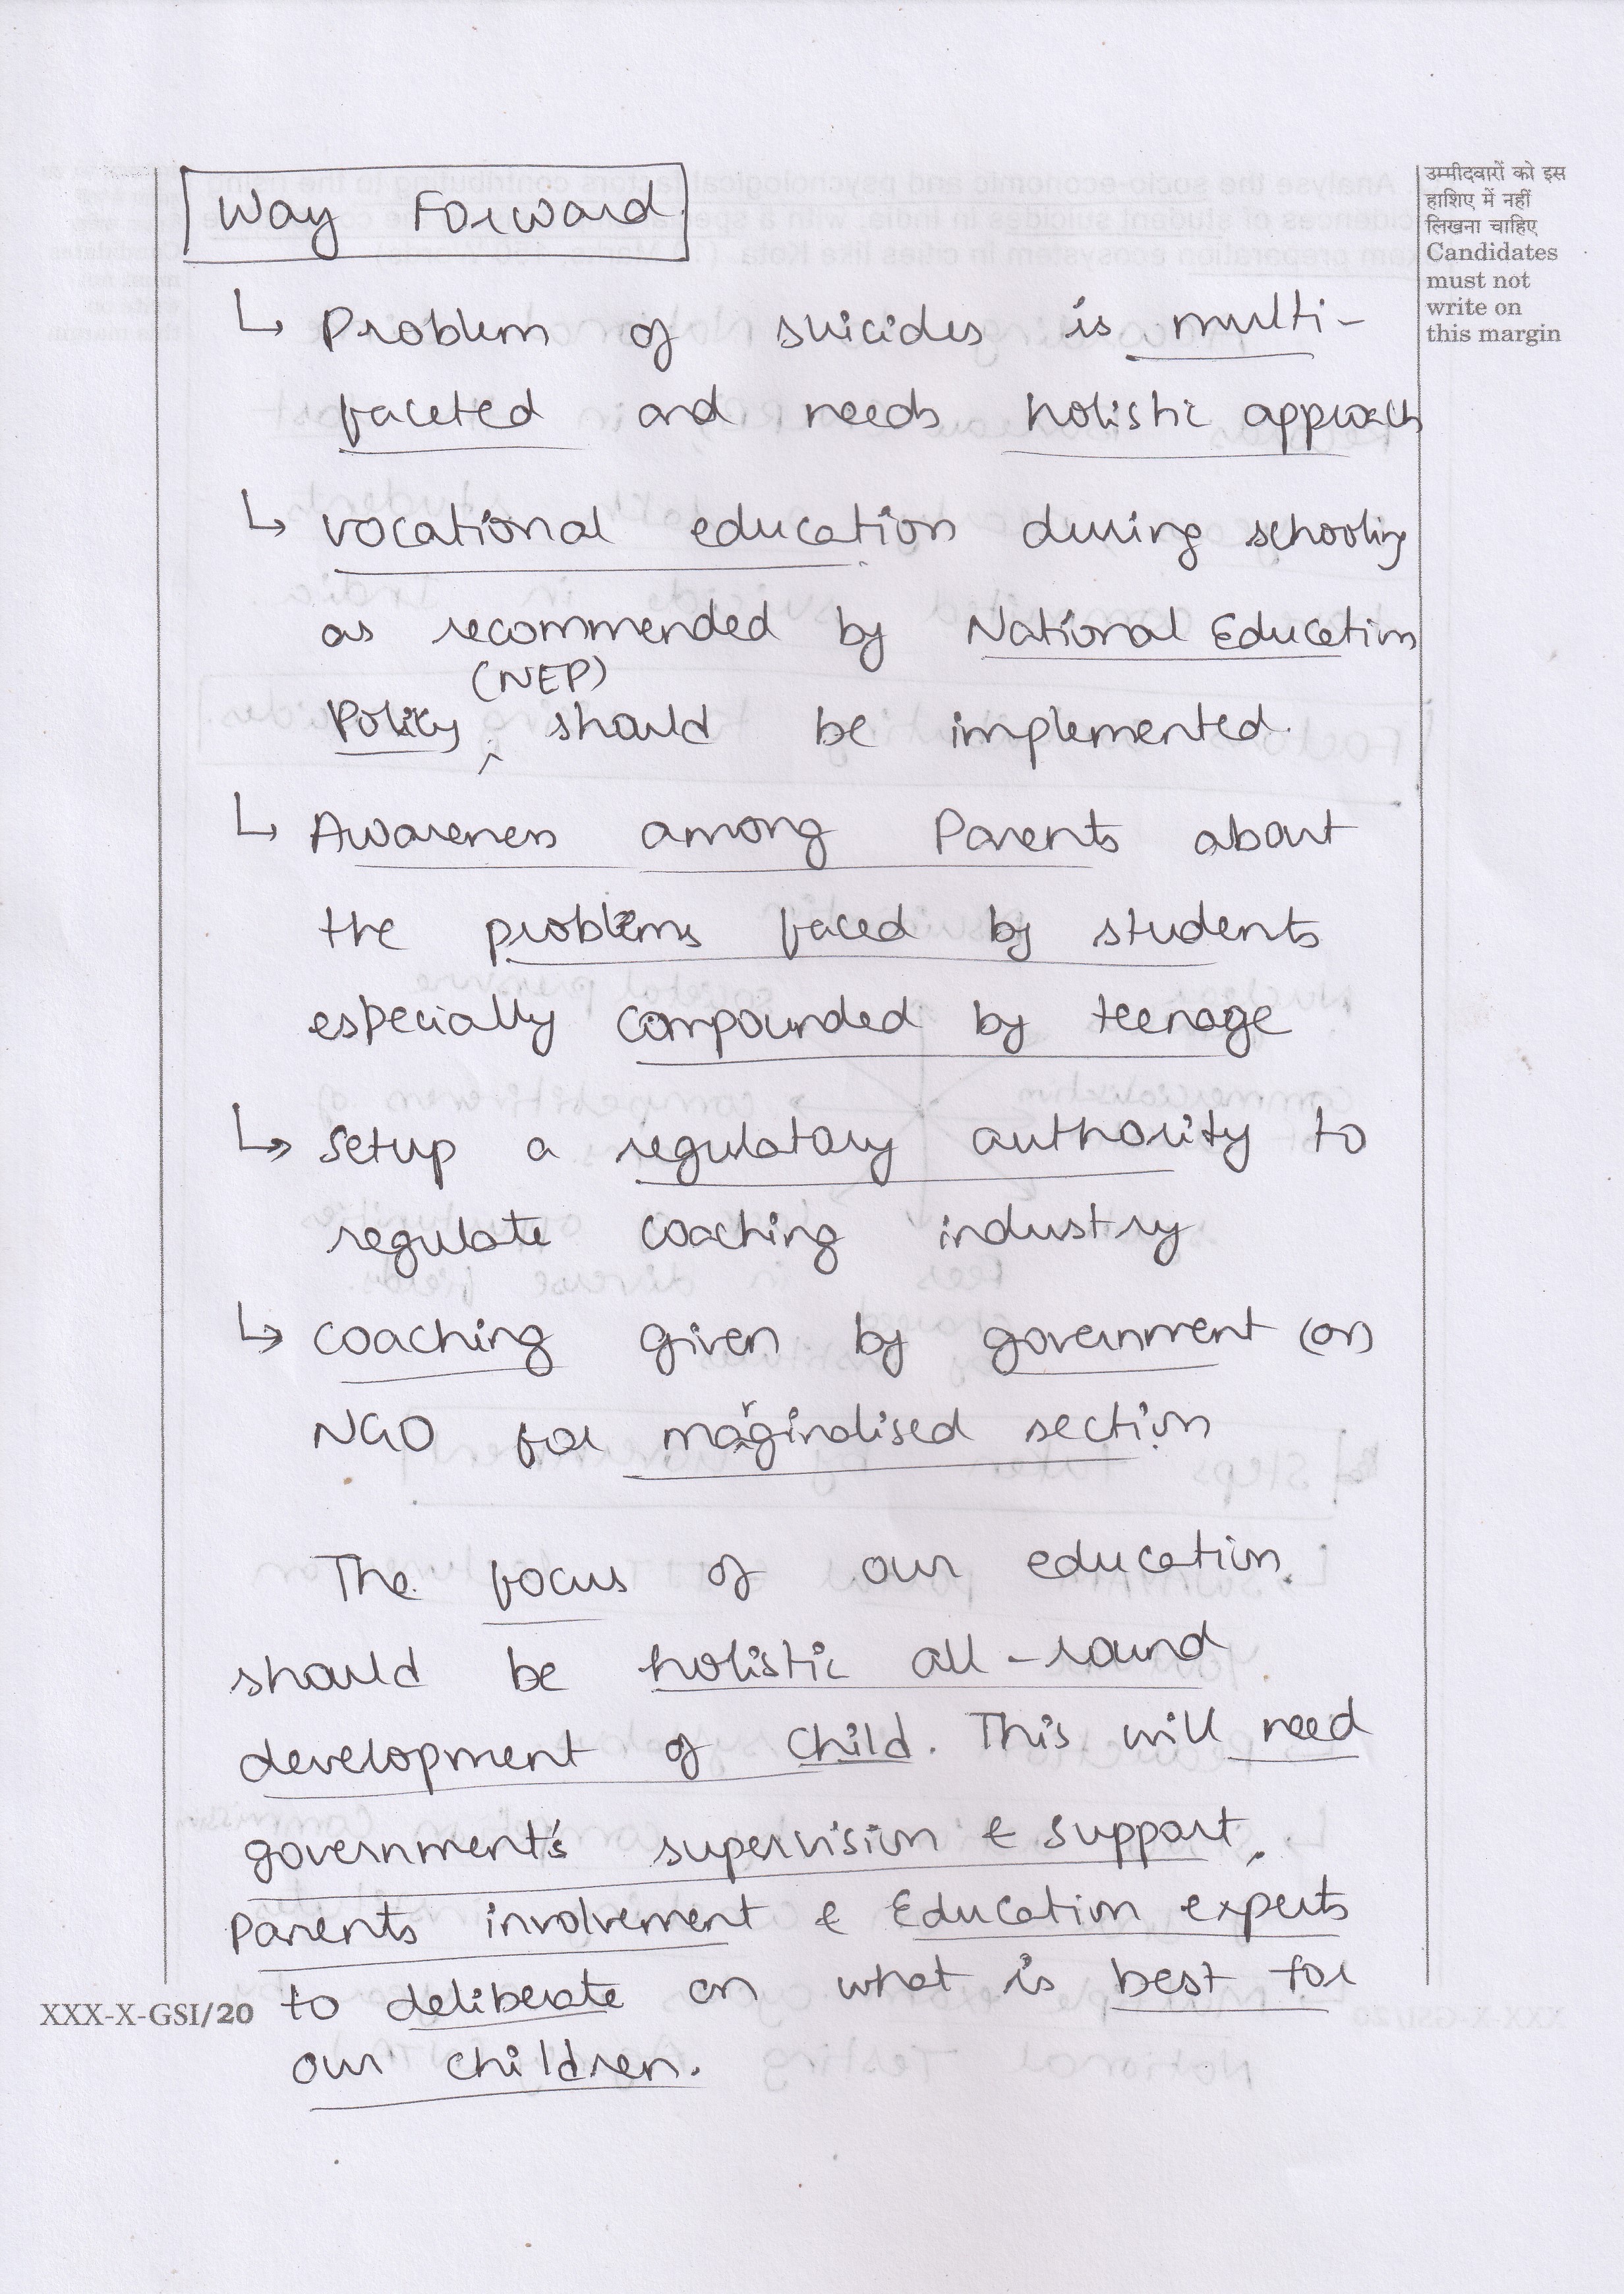 Way Forward
उम्मीदवारों को इस
हाशिए में नहीं
लिखना चाहिए
Candidates
must not
write on
this margin
↳ Problem of suicides is multi-
faceted and needs holistic approach
↳ vocational education during schooling
as recommended by National Education
(NEP)
Policy ^ should be implemented.
↳ Awareness among Parents about
the problems faced by students
especially compounded by teenage
↳ Setup a regulatory authority to
regulate coaching industry
↳ coaching given by government (or)
NGO for marginalised section
The focus of our education
should be holistic all-round
development of child. This will need
government's supervision & support,
Parents involvement & Education experts
to deliberate on what is best for
our children.
XXX-X-GSI/20